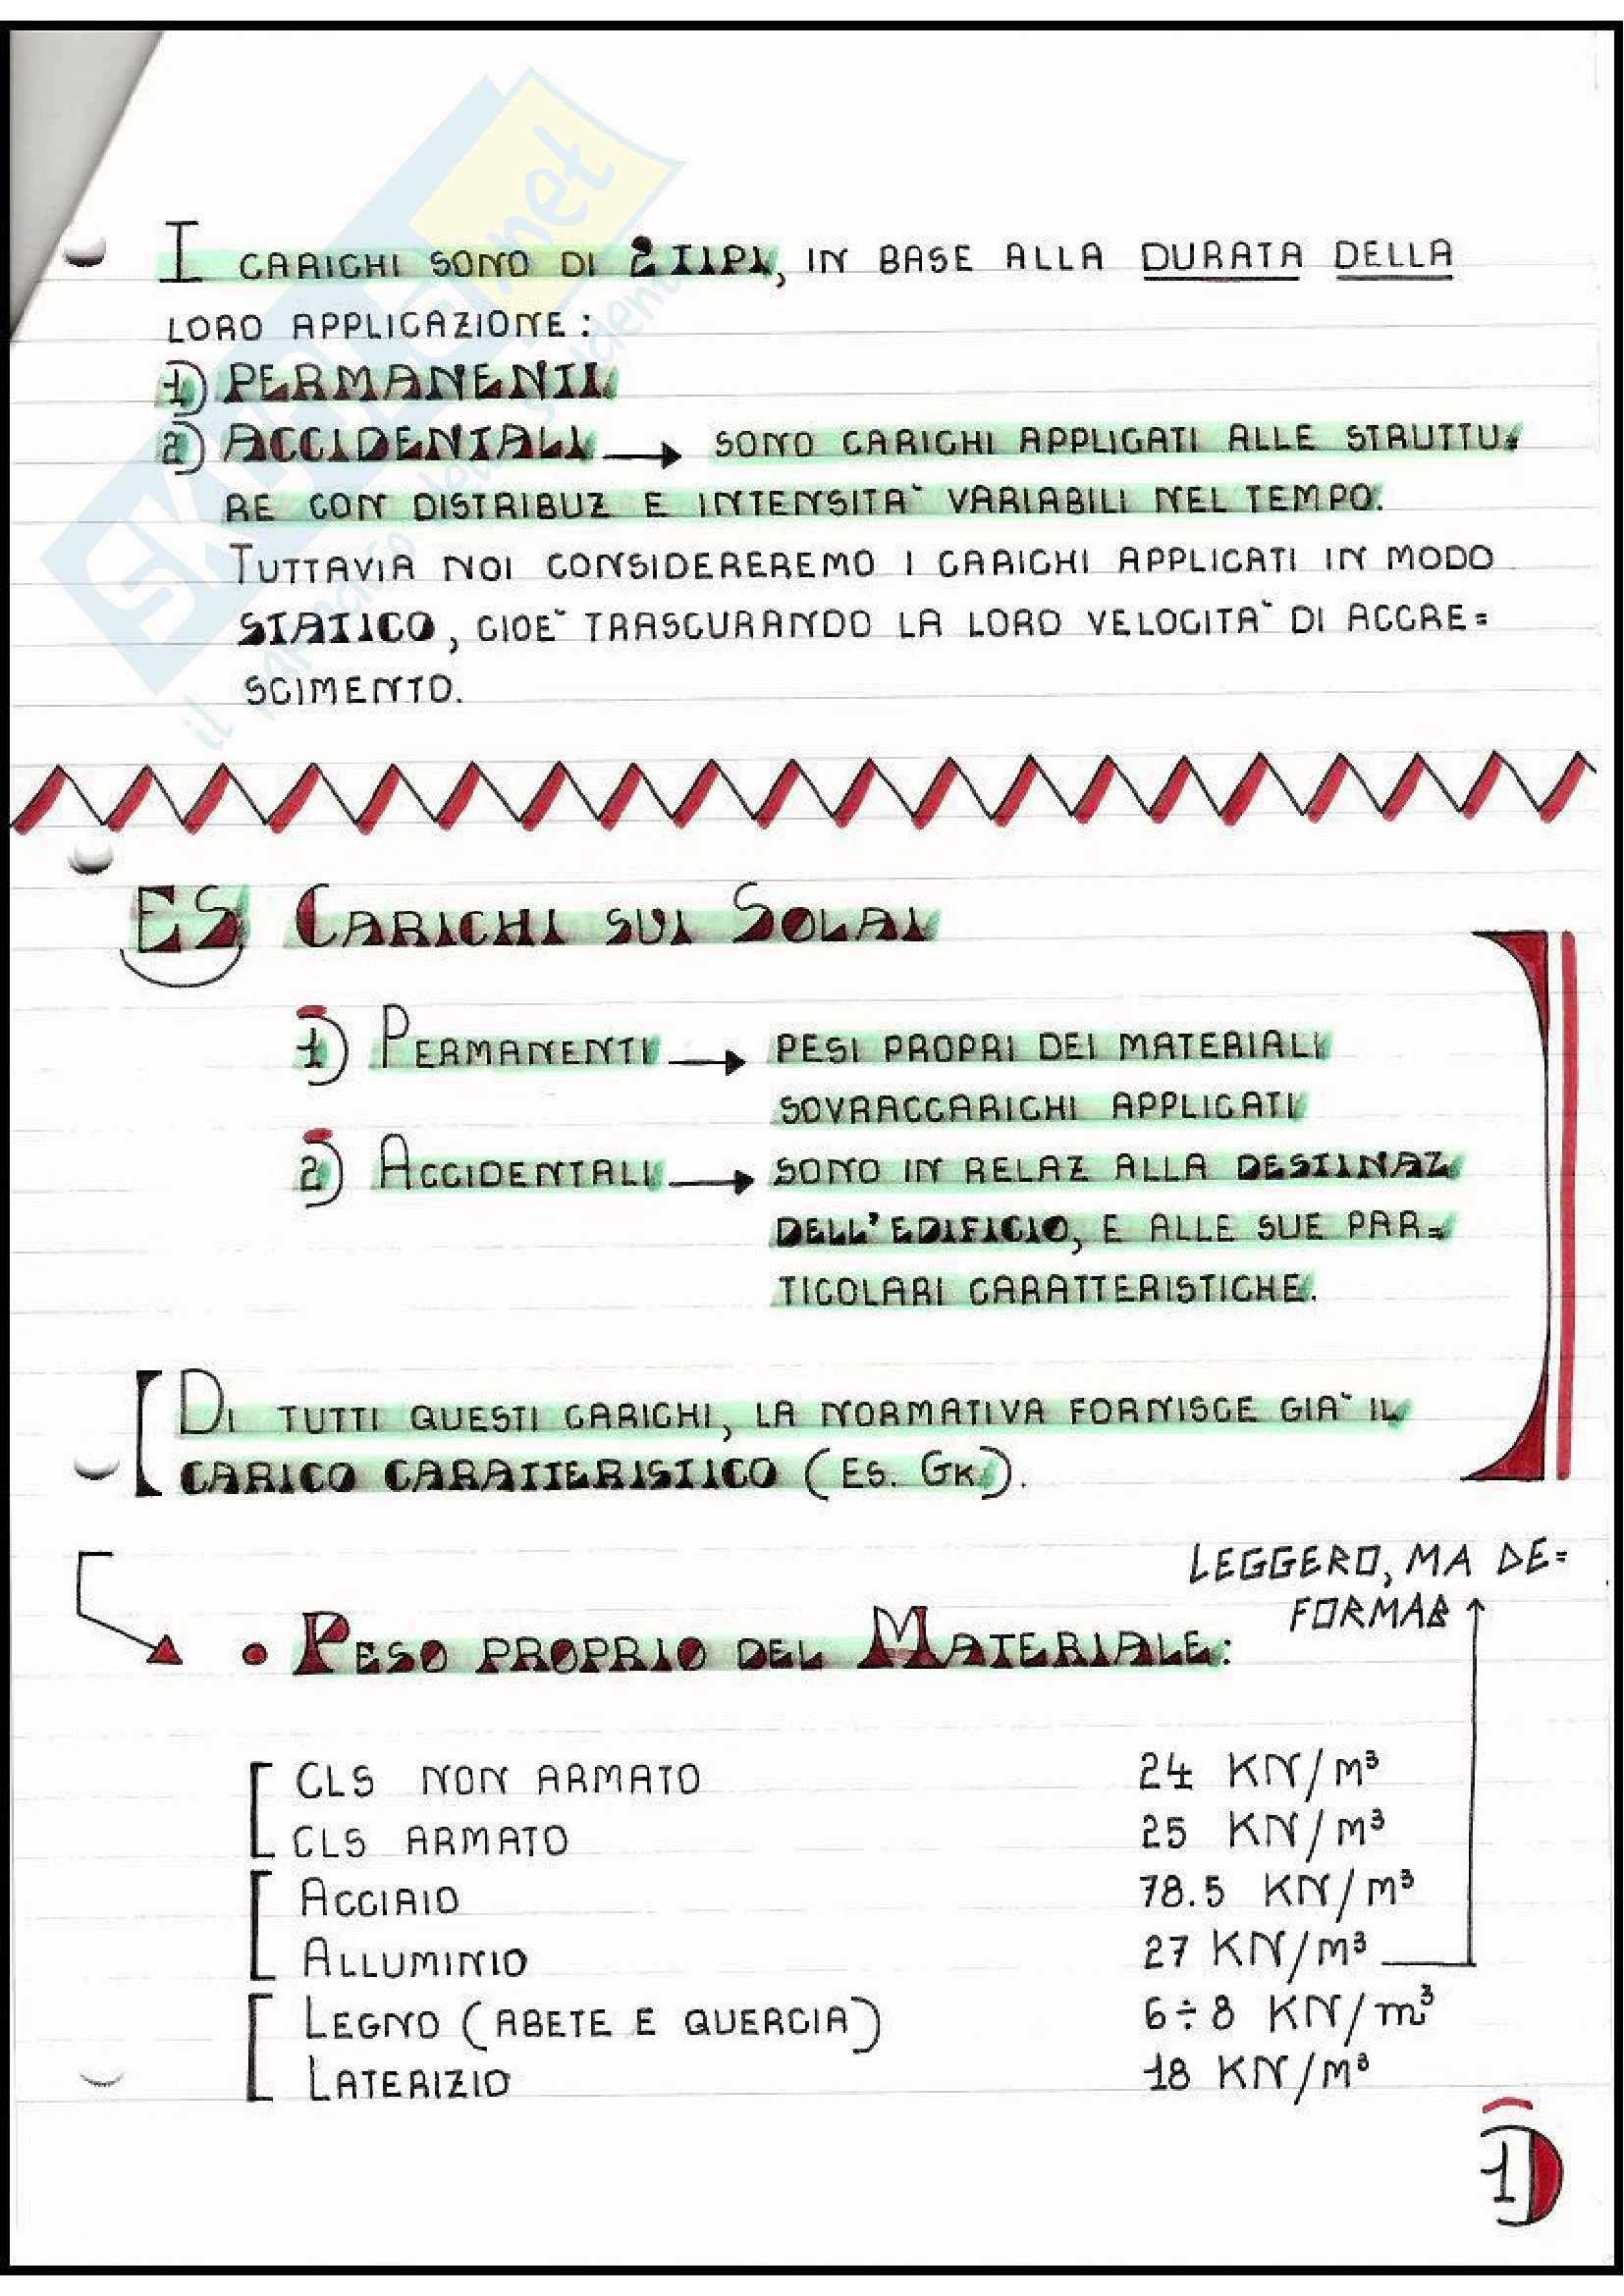 I CARICHI SONO DI 2 TIPI, IN BASE ALLA DURATA DELLA
LORO APPLICAZIONE:
1) PERMANENTI
2) ACCIDENTALI → SONO CARICHI APPLICATI ALLE STRUTTU=
RE CON DISTRIBUZ E INTENSITA' VARIABILI NEL TEMPO.
TUTTAVIA NOI CONSIDEREREMO I CARICHI APPLICATI IN MODO
STATICO, CIOE' TRASCURANDO LA LORO VELOCITA' DI ACCRE=
SCIMENTO.
ES CARICHI SUI SOLAI
1) PERMANENTI → PESI PROPRI DEI MATERIALI
SOVRACCARICHI APPLICATI
2) ACCIDENTALI → SONO IN RELAZ ALLA DESTINAZ
DELL'EDIFICIO, E ALLE SUE PAR=
TICOLARI CARATTERISTICHE.
DI TUTTI QUESTI CARICHI, LA NORMATIVA FORNISCE GIA' IL
CARICO CARATTERISTICO (ES. GK.).
LEGGERO, MA DE=
FORMAB
• PESO PROPRIO DEL MATERIALE:
CLS NON ARMATO 24 KN/m³
CLS ARMATO 25 KN/m³
ACCIAIO 78.5 KN/m³
ALLUMINIO 27 KN/m³
LEGNO (ABETE E QUERCIA) 6÷8 KN/m³
LATERIZIO 18 KN/m³
1
SKUOLA.net
il paradiso dello studente